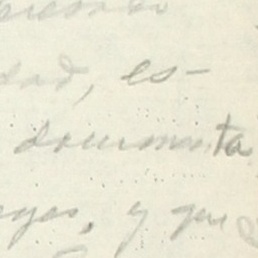 dad, es-
documenta
yas, y que